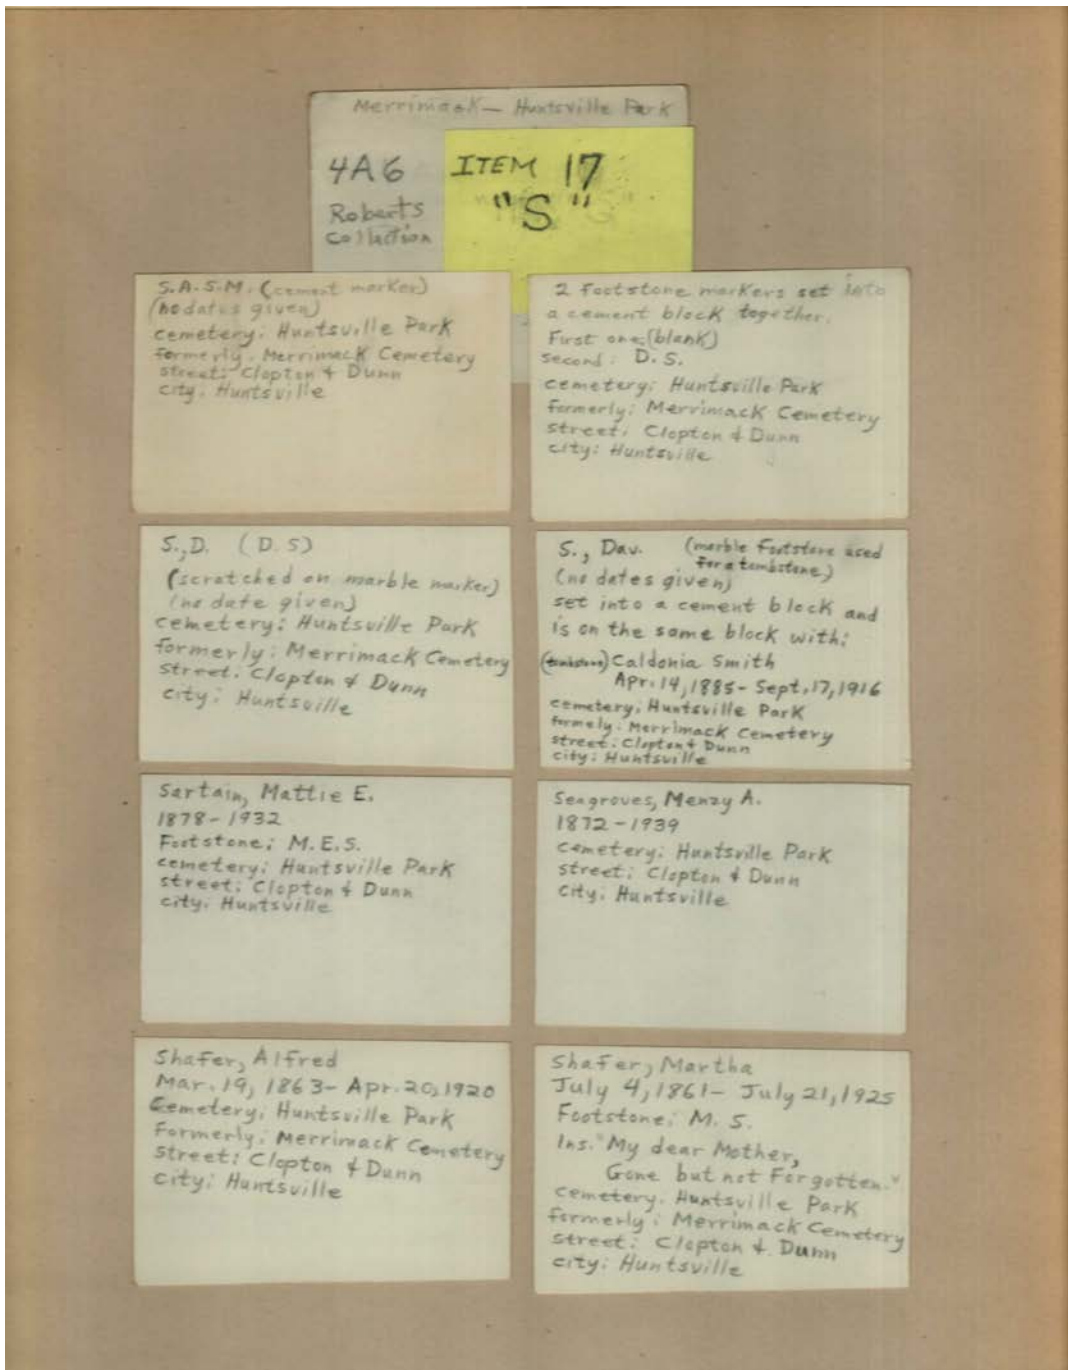 Merrimack — Huntsville Park
4A6
Roberts
Collection
ITEM 17
"S"
S.A.S.M. (cement marker)
(no dates given)
cemetery: Huntsville Park
formerly: Merrimack Cemetery
street: Clopton & Dunn
city: Huntsville
2 Footstone markers set into
a cement block together.
First one: (blank)
second: D.S.
cemetery: Huntsville Park
formerly: Merrimack Cemetery
street: Clopton & Dunn
city: Huntsville
S., D. (D.S)
(scratched on marble marker)
(no date given)
cemetery: Huntsville Park
formerly: Merrimack Cemetery
street: Clopton & Dunn
city: Huntsville
S., Dav. (marble Footstone used
for a tombstone)
(no dates given)
set into a cement block and
is on the same block with:
(tombstone) Caldonia Smith
Apr. 14, 1885 - Sept. 17, 1916
cemetery: Huntsville Park
formely: Merrimack Cemetery
street: Clopton & Dunn
city: Huntsville
Sartain, Mattie E.
1878 - 1932
Footstone: M.E.S.
cemetery: Huntsville Park
street: Clopton & Dunn
city: Huntsville
Seagroves, Menzy A.
1872 - 1939
cemetery: Huntsville Park
street: Clopton & Dunn
city: Huntsville
Shafer, Alfred
Mar. 19, 1863 - Apr. 20, 1920
Cemetery: Huntsville Park
formerly: Merrimack Cemetery
street: Clopton & Dunn
city: Huntsville
Shafer, Martha
July 4, 1861 - July 21, 1925
Footstone: M. S.
Ins. "My dear Mother,
Gone but not Forgotten."
cemetery: Huntsville Park
formerly: Merrimack Cemetery
street: Clopton & Dunn
city: Huntsville